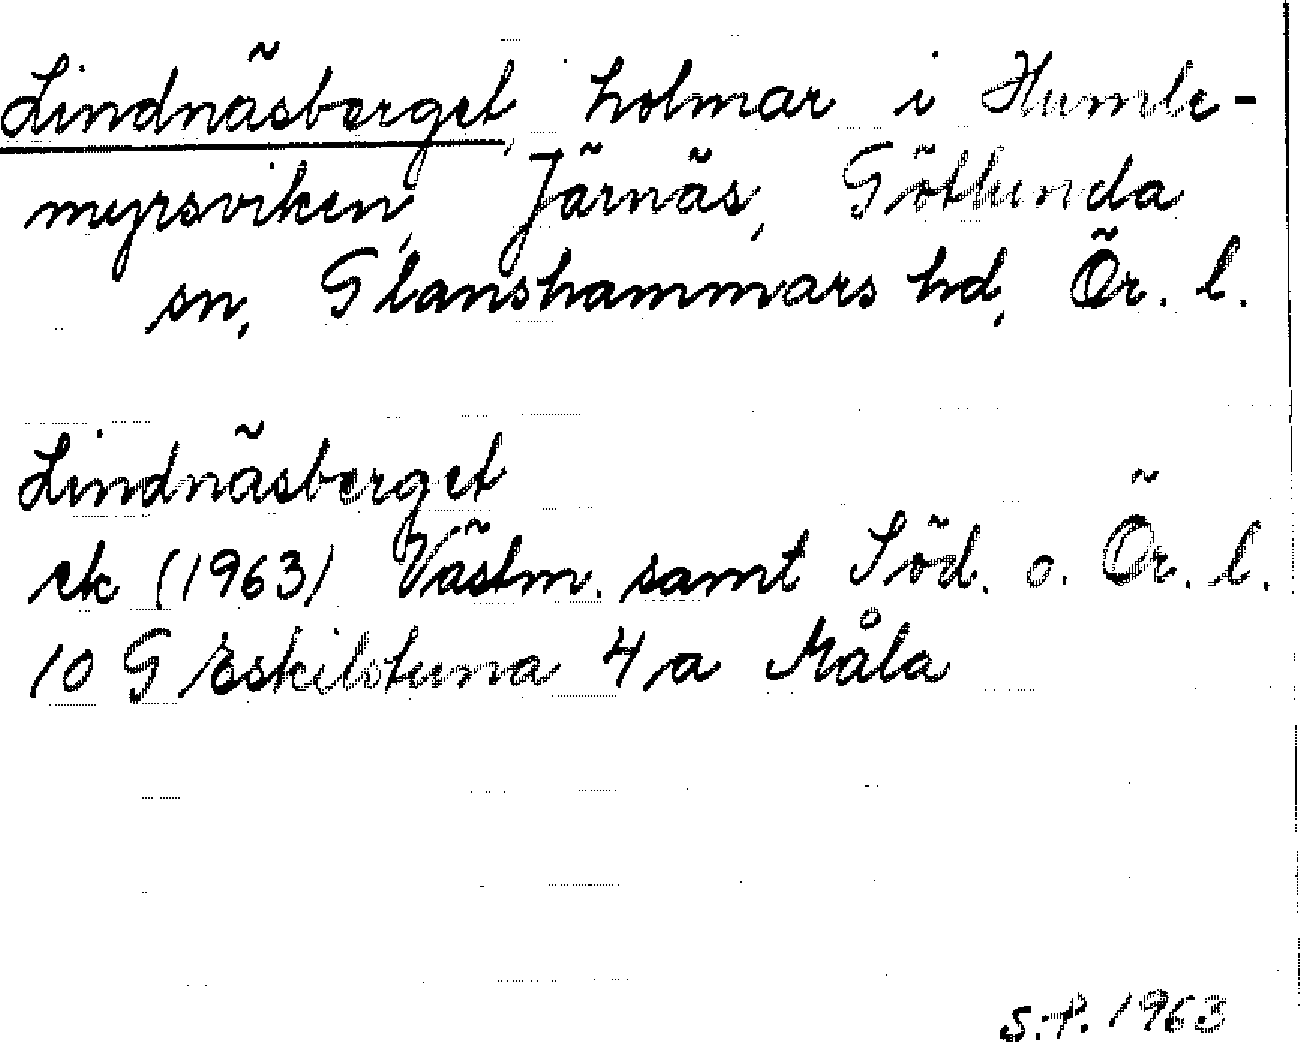 Lindnäsberget, holmar i Humle-
myrsviken, Järnäs, Götlunda
sn, Glanshammars hd, Ör. l.
Lindnäsberget
ek (1963) Västm. samt Söd. o. Ör. l.
10 G Eskilstuna 4 a Måla
S.P. 1963